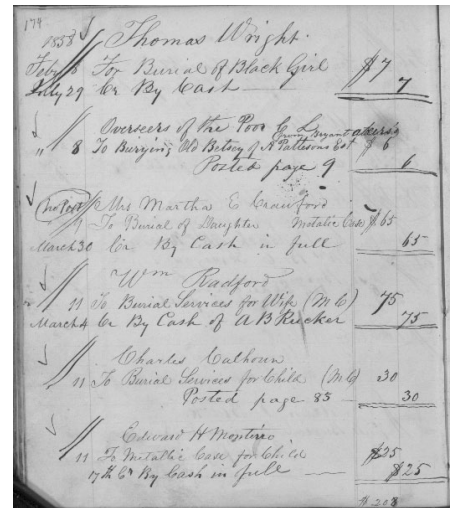 174
1858 Thomas Wright.
Feby 8 For Burial of Black Girl $7
July 29 Cr By Cash — 7
Overseers of the Poor
" 8 To Burying Old Betsey of N Pattesons Est from Bryant $6
Posted page 9 6
no Post Mrs Martha E Crawford
9 To Burial of Daughter Metalic Case $65
March 30 Cr By Cash in full 65
Wm Radford
11 To Burial Services for Wife (M C) 75
March 4 Cr By Cash of A B Rucker 75
Charles Calhoun
11 To Burial Services for Child (M C) 30
Posted page 85 — 30
Edward H
11 To Metallic Case for Child $25
17th Cr By Cash in full — $25
$208